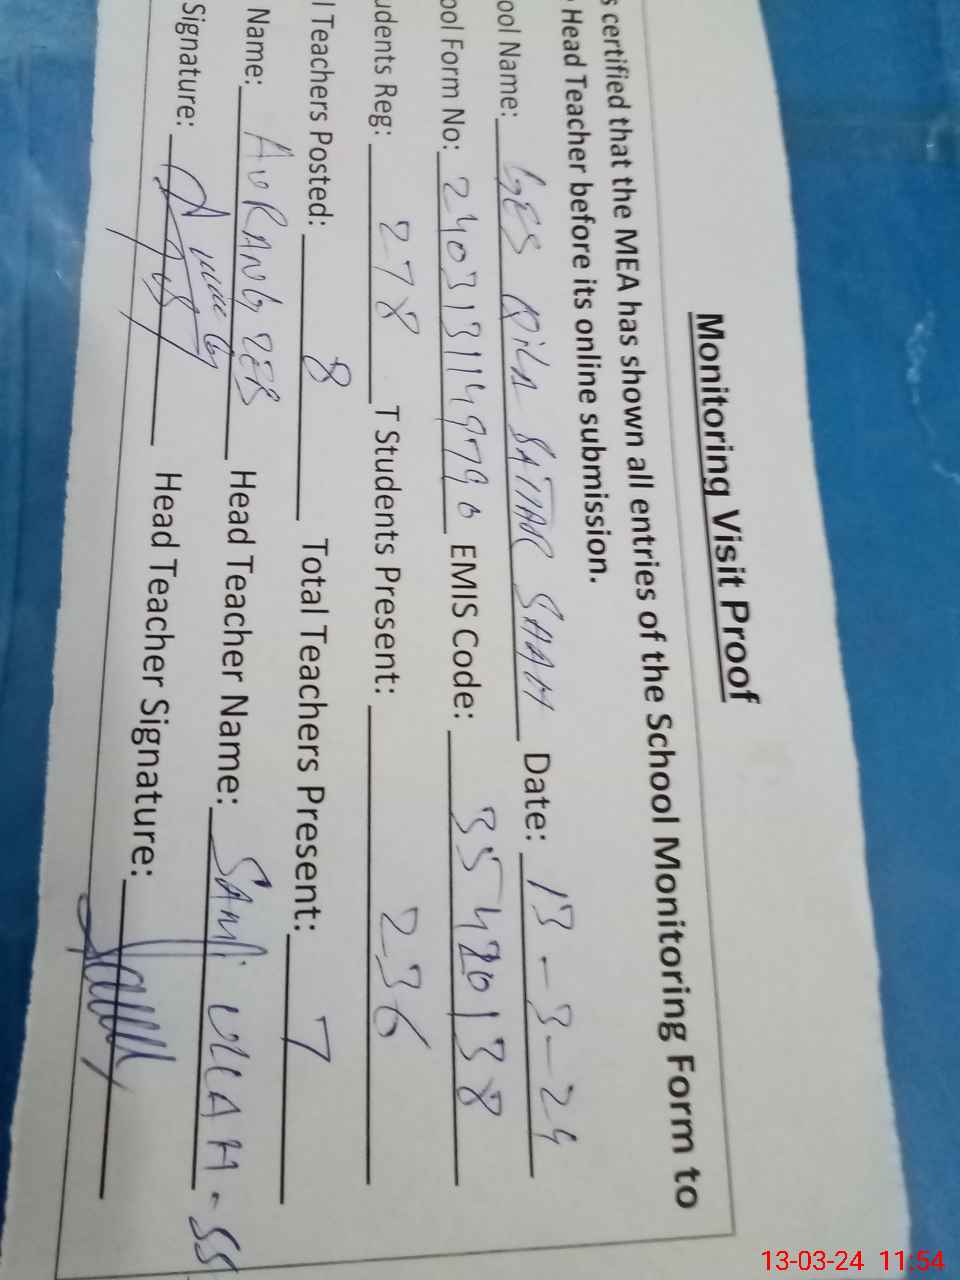 Monitoring Visit Proof
s certified that the MEA has shown all entries of the School Monitoring Form to
Head Teacher before its online submission.
ool Name: GES QilA SATTAR SHAH Date: 13-3-24
ool Form No: EMIS Code: 35420138
udents Reg: 278 T Students Present: 236
l Teachers Posted: 8 Total Teachers Present: 7
Name: AURANGZEB Head Teacher Name: SAMI ULLAH - SS
Signature: Head Teacher Signature:
13-03-24 11:54